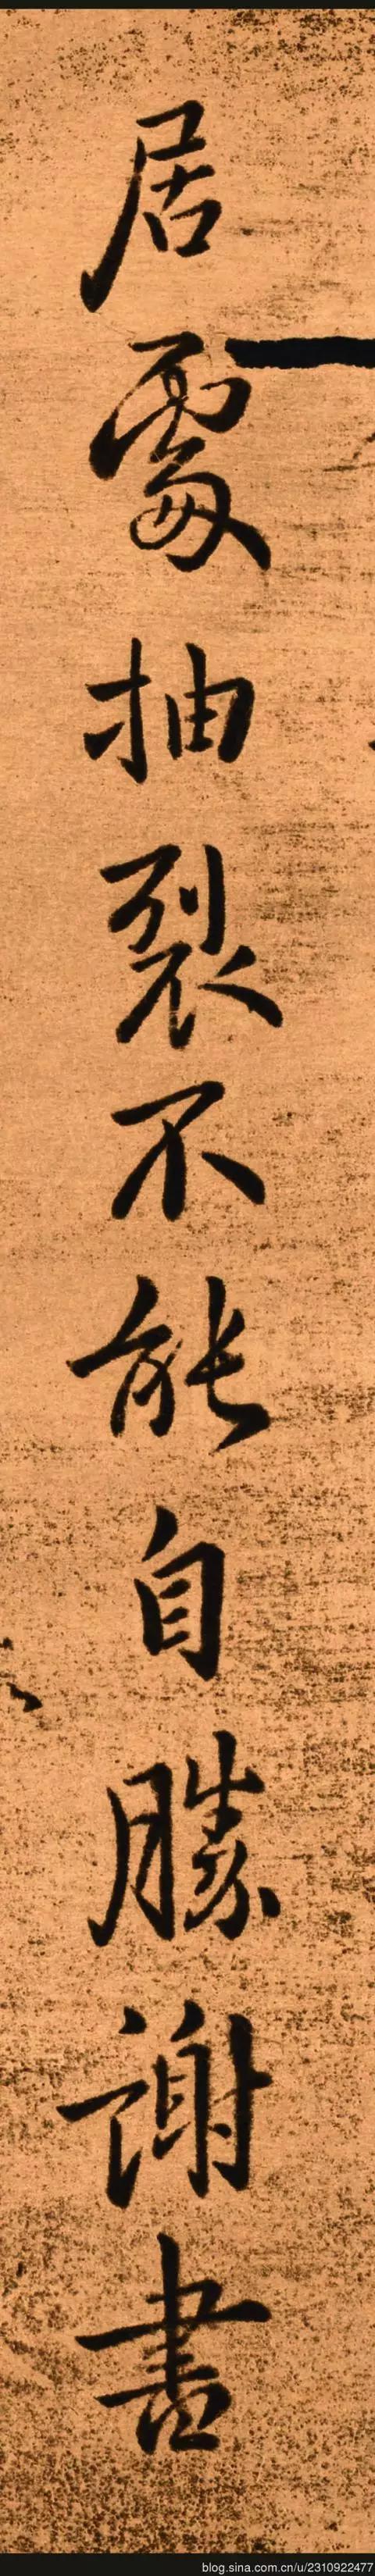 居處抽裂不能自勝謝書
blog.sina.com.cn/u/2310922477